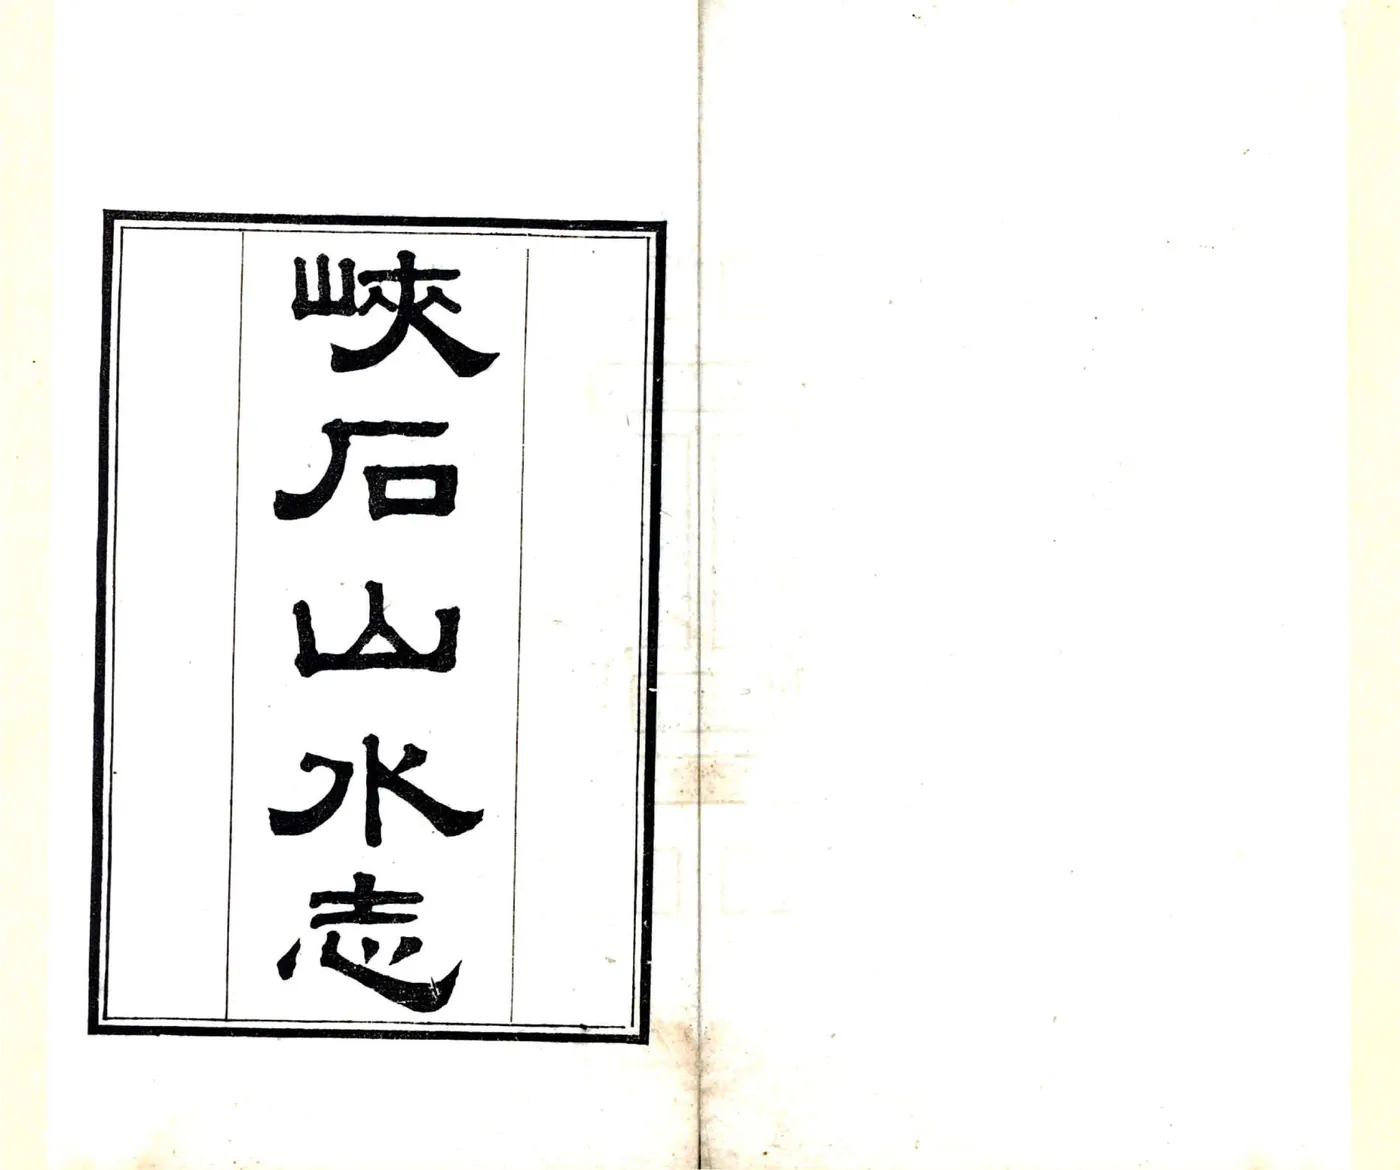 峽石山水志